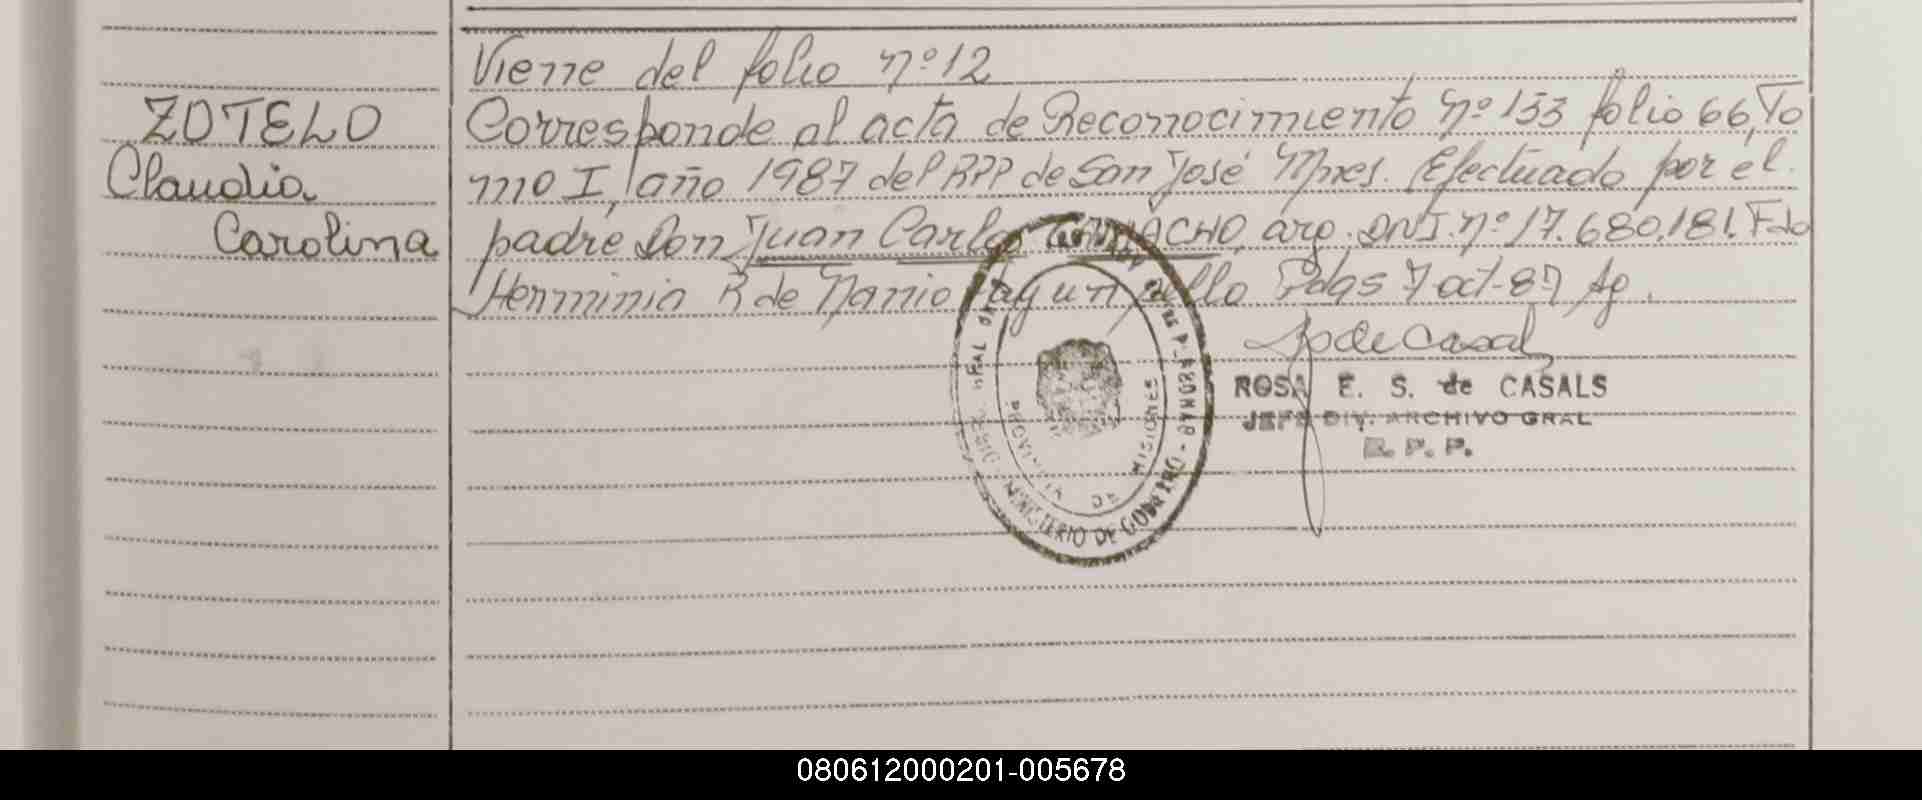 Viene del folio nº 12
ZOTELO
Claudia
Carolina
Corresponde al acta de Reconocimiento nº 133 folio 66, To
mo I, año 1987 del RPP de San José Mnes. Efectuado por el
padre Don Juan Carlos CAMACHO, arg. DNI. nº 17.680.181. Fdo
Herminia R de Nanio Pdas 7 oct-87
ROSA E. S. de CASALS
JEFE DIV. ARCHIVO GRAL
R. P. P.
MINISTERIO DE GOBIERNO
PROVINCIA DE MISIONES
080612000201-005678